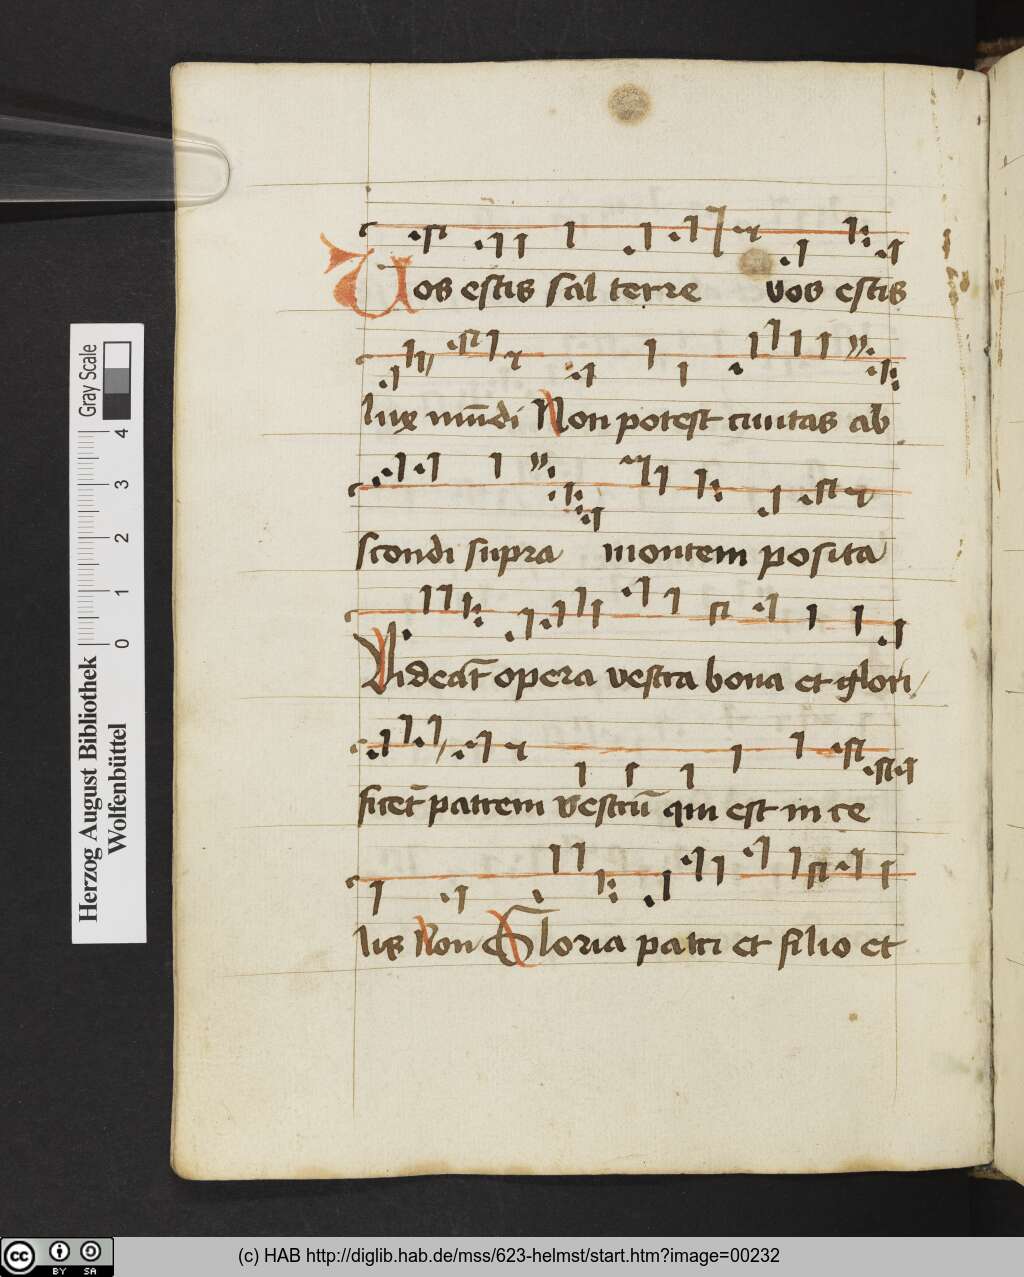 Vos estis sal terre vos estis
lux mūdi Non potest ciuitas ab
scondi supra montem posita
Videāt opera vestra bona et glori/
ficēt patrem vestrū qui est in ce
lis Non Gloria patri et filio et
Gray Scale
4
3
2
1
0
Herzog August Bibliothek
Wolfenbüttel
cc
BY SA
(c) HAB http://diglib.hab.de/mss/623-helmst/start.htm?image=00232